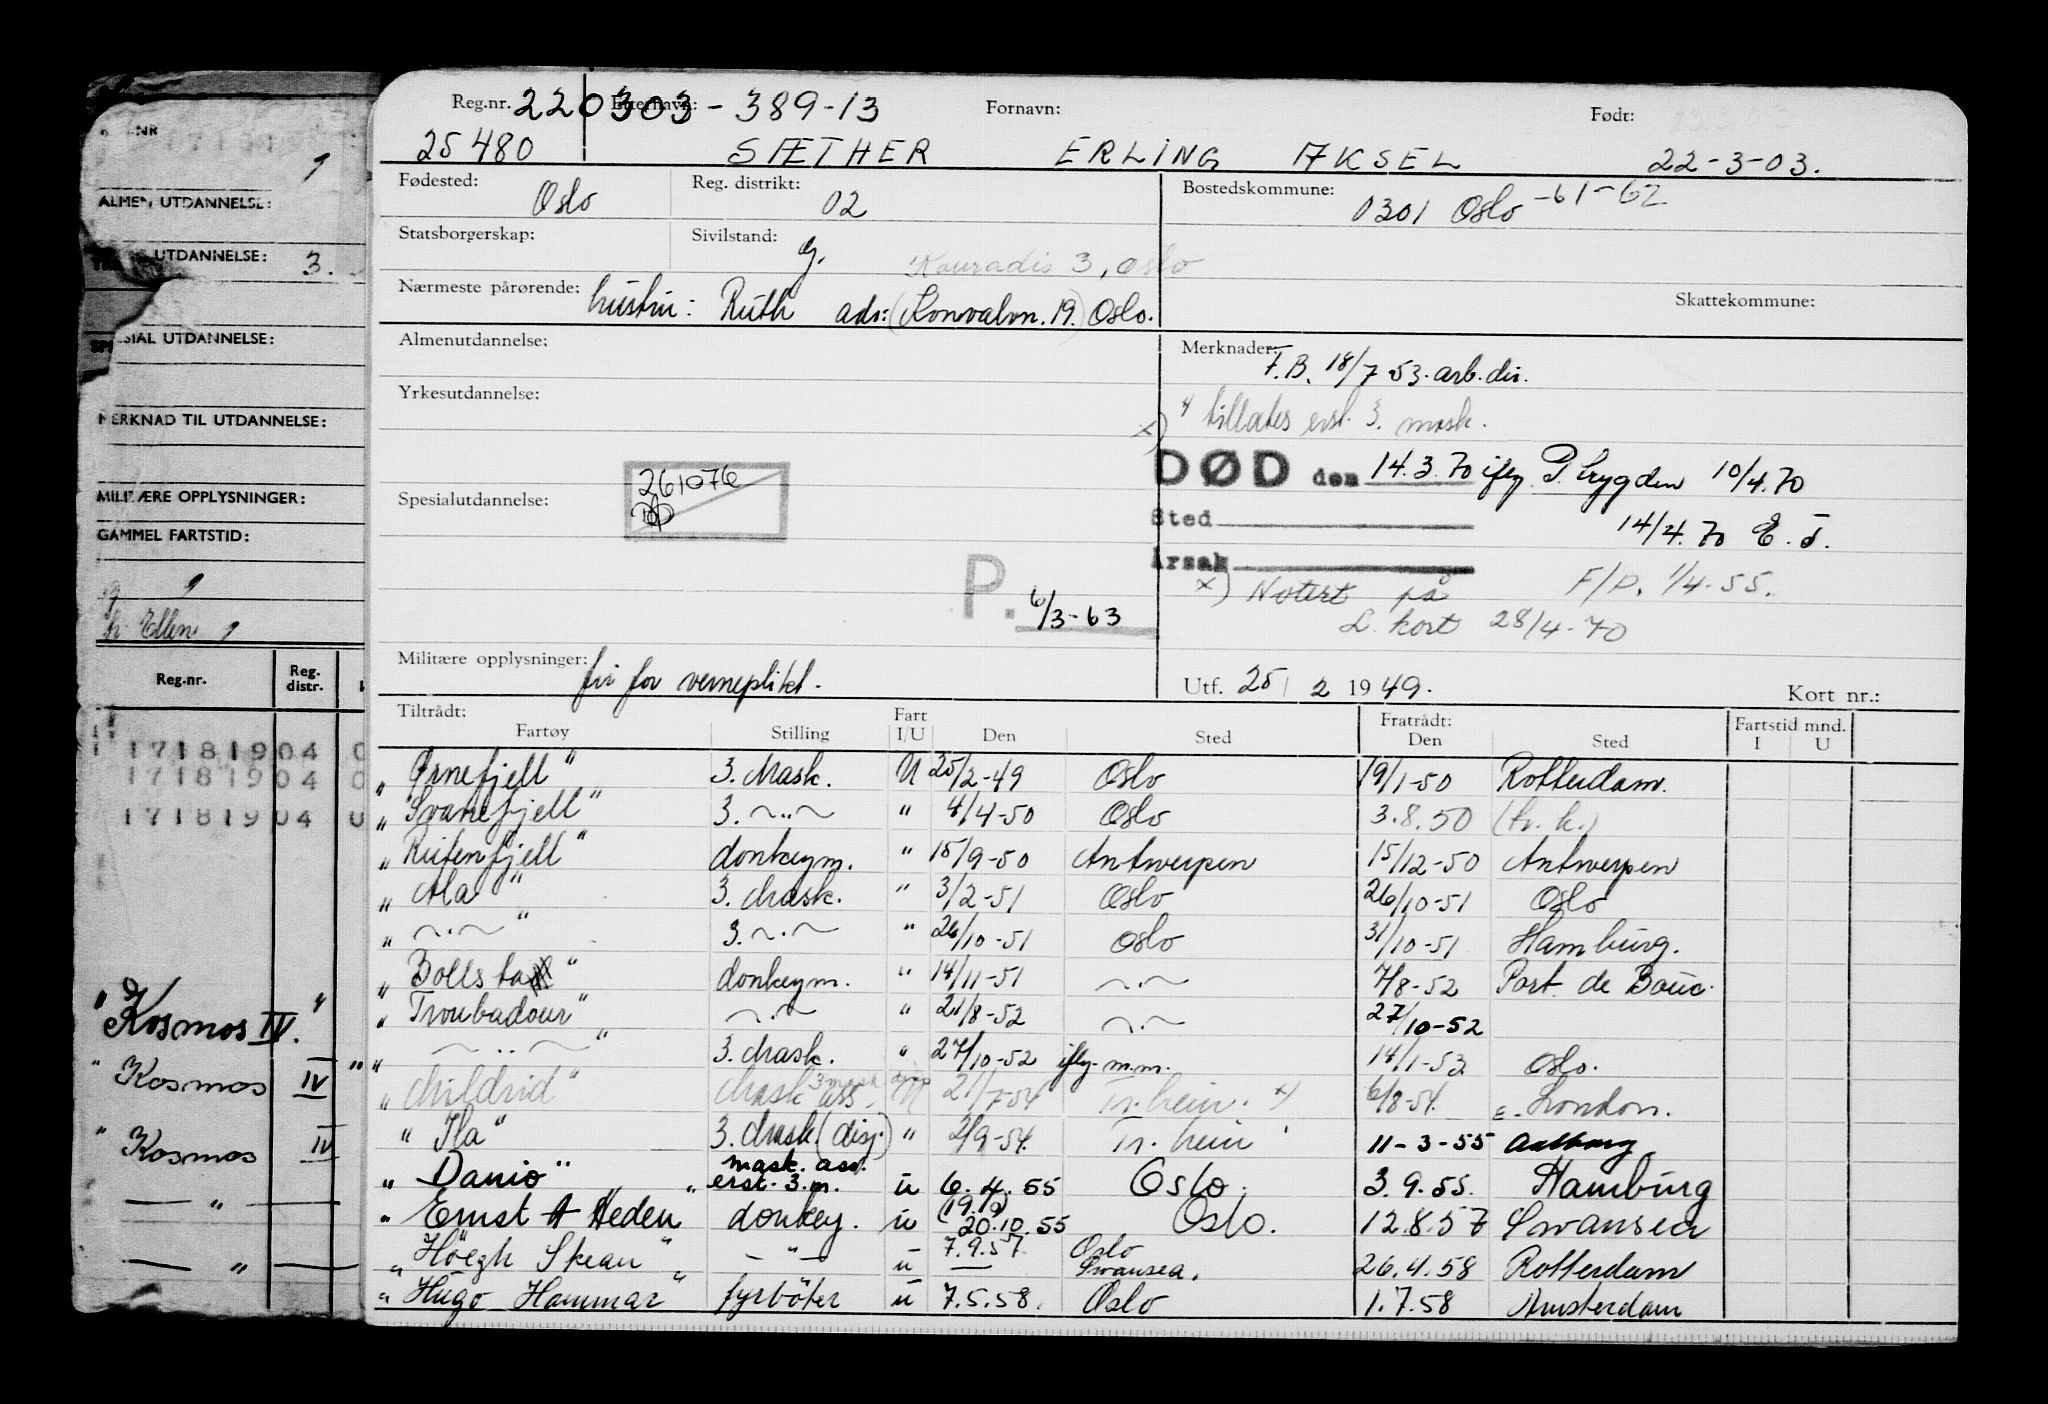 Reg.nr. 220303-389-13 Etternavn: Fornavn: Født:
25480 SÆTHER ERLING AKSEL 22-3-03.
Fødested: Oslo Reg. distrikt: 02 Bostedskommune: 0301 Oslo -61-62
Statsborgerskap: Sivilstand: g.
3, Oslo
Nærmeste pårørende: hustru: Ruth adr: (Konvalvn. 19.) Oslo. Skattekommune:
Almenutdannelse:
Merknader: F.B. 18/7 53. arb. dir.
Yrkesutdannelse:
x) tillates erst. 3. mask.
DØD den 14.3.70 iflg. P. trygden 10/4.70
Spesialutdannelse: 261076
Sted 14/4.70
Årsak
x) Notert på F/P. 1/4-55.
L. kort 28/4-70
P. 6/3-63
Militære opplysninger: fri for verneplikt.
Utf. 25/2 1949. Kort nr.:
Tiltrådt: Fratrådt: Fartstid mnd.
Fartøy Stilling Fart I/U Den Sted Den Sted I U
"Ørnefjell" 3. Mask. U 25/2-49 Oslo 19/1-50 Rotterdam.
"Svanefjell" 3. ~..~ " 4/4-50 Oslo 3.8.50 (tr. k.)
"Rutenfjell" donkeym. " 15/9-50 Antwerpen 15/12-50 Antwerpen
"Ala" 3. Mask. " 3/2-51 Oslo 26/10-51 Oslo
" ~.~ " 3. ~.~ " 26/10-51 Oslo 31/10-51 Hamburg.
" " donkeym. " 14/11-51 ~.~ 7/8-52 Port de Bouc.
"Troubadour" ~.~ " 21/8-52 ~.~ 27/10-52
" ~..~ " 3. Mask. " 27/10-52 iflg. m.m. 14/1-53 Oslo.
"Mildrid" Mask. ass. 3 mask U 21/7-54 Tr.heim. x) 6/8-54. E. London.
"Ila" 3. Mask. (disp.) " 2/9-54. Tr.heim 11-3-55 Aalborg
"Danio" mask. ass. erst. 3.m. u 6.4.55 Oslo. 3.9.55. Hamburg
"Ernst A Heden" donkey. u (19.9) 20.10.55 Oslo. 12.8.57 Swansea
"Höegh Skean" — " — u 7.9.57. Oslo Swansea. 26.4.58 Rotterdam
"Hugo Hammar" fyrböter u 7.5.58. Oslo 1.7.58 Amsterdam
ALMEN UTDANNELSE:
UTDANNELSE: 3.
UTDANNELSE:
MERKNAD TIL UTDANNELSE:
MILITÆRE OPPLYSNINGER:
GAMMEL FARTSTID:
Ellen
Reg.nr. Reg. distr.
17181904 0
17181904 0
17181904 0
"Kosmos IV."
"Kosmos IV"
"Kosmos IV
— " —
— " —